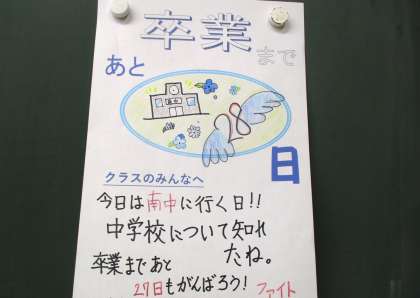 卒業まで
あと
28
日
クラスのみんなへ
今日は南中に行く日!!
中学校について知れ
たね。
卒業まであと
27日もがんばろう! ファイト